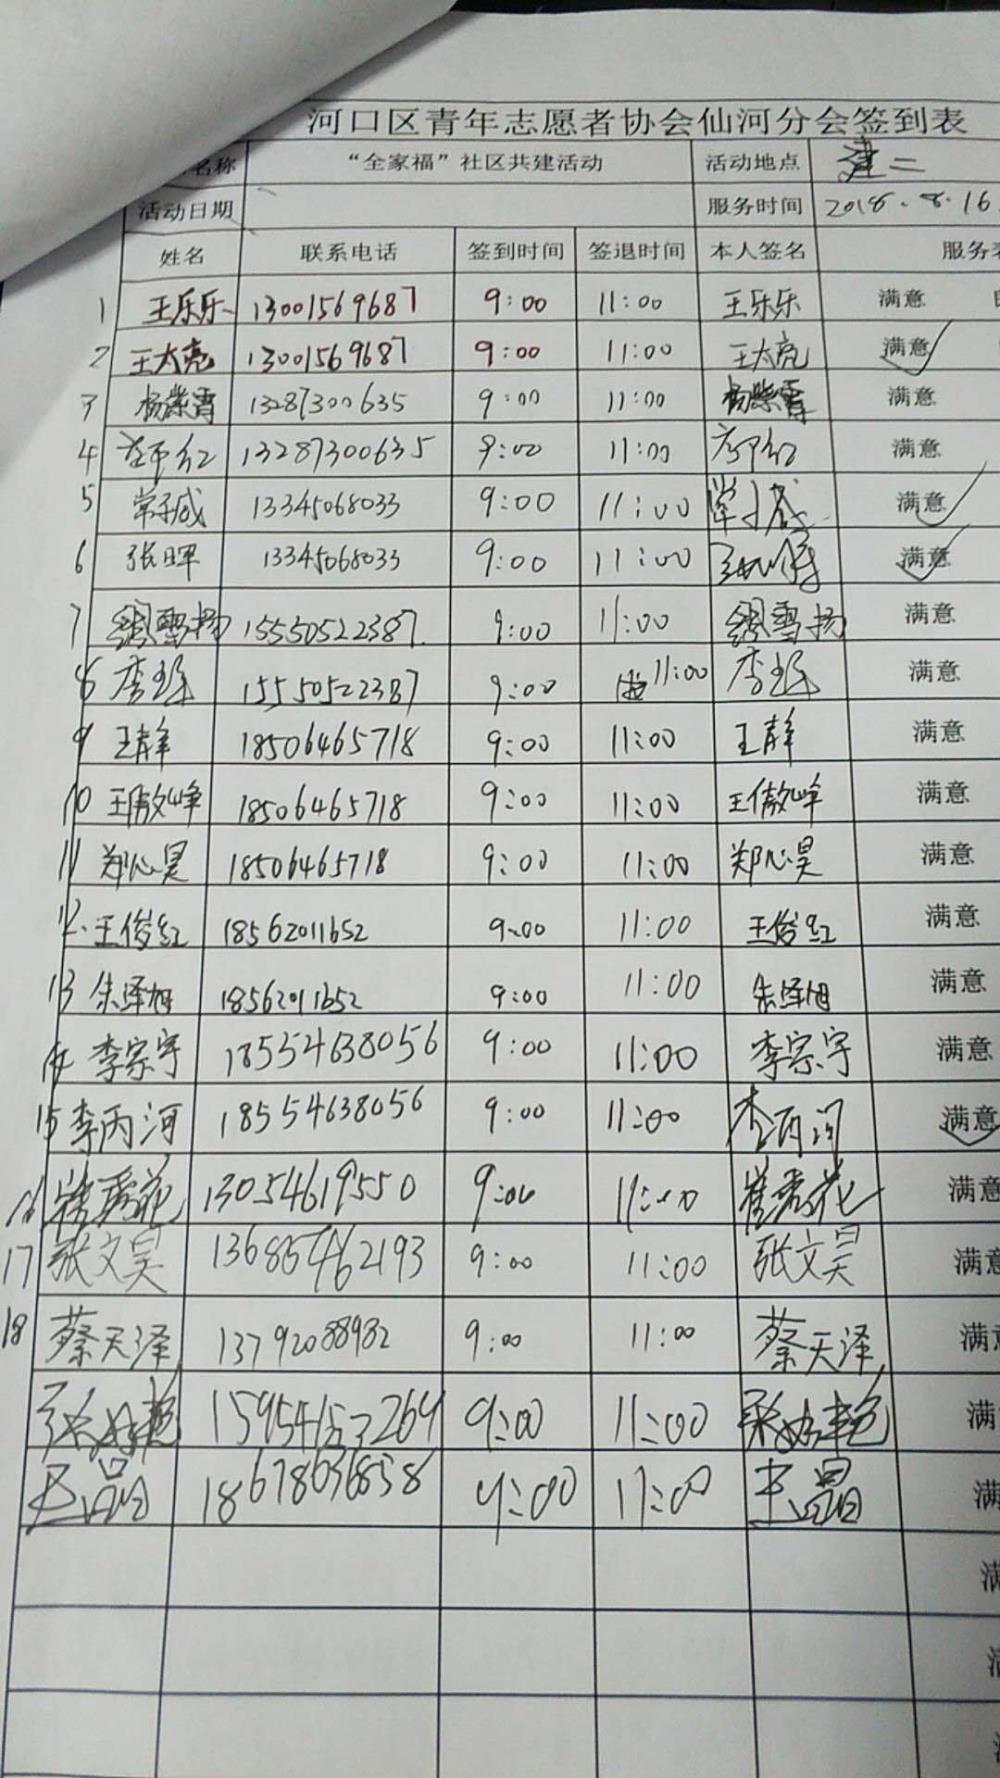 河口区青年志愿者协会仙河分会签到表
名称 “全家福”社区共建活动 活动地点 建二
活动日期 服务时间 2018.8.16
姓名 联系电话 签到时间 签退时间 本人签名 服务
1 王乐乐 13001569687 9:00 11:00 王乐乐 满意
2 王太亮 13001569687 9:00 11:00 王太亮 满意
3 杨紫霄 13287300635 9:00 11:00 杨紫霄 满意
4 13287300635 9:00 11:00 满意
5 常子成 13345068033 9:00 11:00 满意
6 张晖 13345068033 9:00 11:00 满意
7 雪扬 15550522387 9:00 11:00 雪扬 满意
8 李 15550522387 9:00 11:00 李 满意
9 王静 18506465718 9:00 11:00 王静 满意
10 王傲峰 18506465718 9:00 11:00 王傲峰 满意
11 郑心昊 18506465718 9:00 11:00 郑心昊 满意
12. 王俊红 18562011652 9:00 11:00 王俊红 满意
13 朱泽旭 18562011652 9:00 11:00 朱泽旭 满意
14 李宗宇 18554638056 9:00 11:00 李宗宇 满意
15 李丙河 18554638056 9:00 11:00 李丙河 满意
16 崔秀花 13054619550 9:00 11:00 崔秀花 满意
17 张文昊 13685462193 9:00 11:00 张文昊 满意
18 蔡天泽 13792088982 9:00 11:00 蔡天泽 满
张 9:00 11:00 张 满
18678636858 9:00 11:00 满
满
满